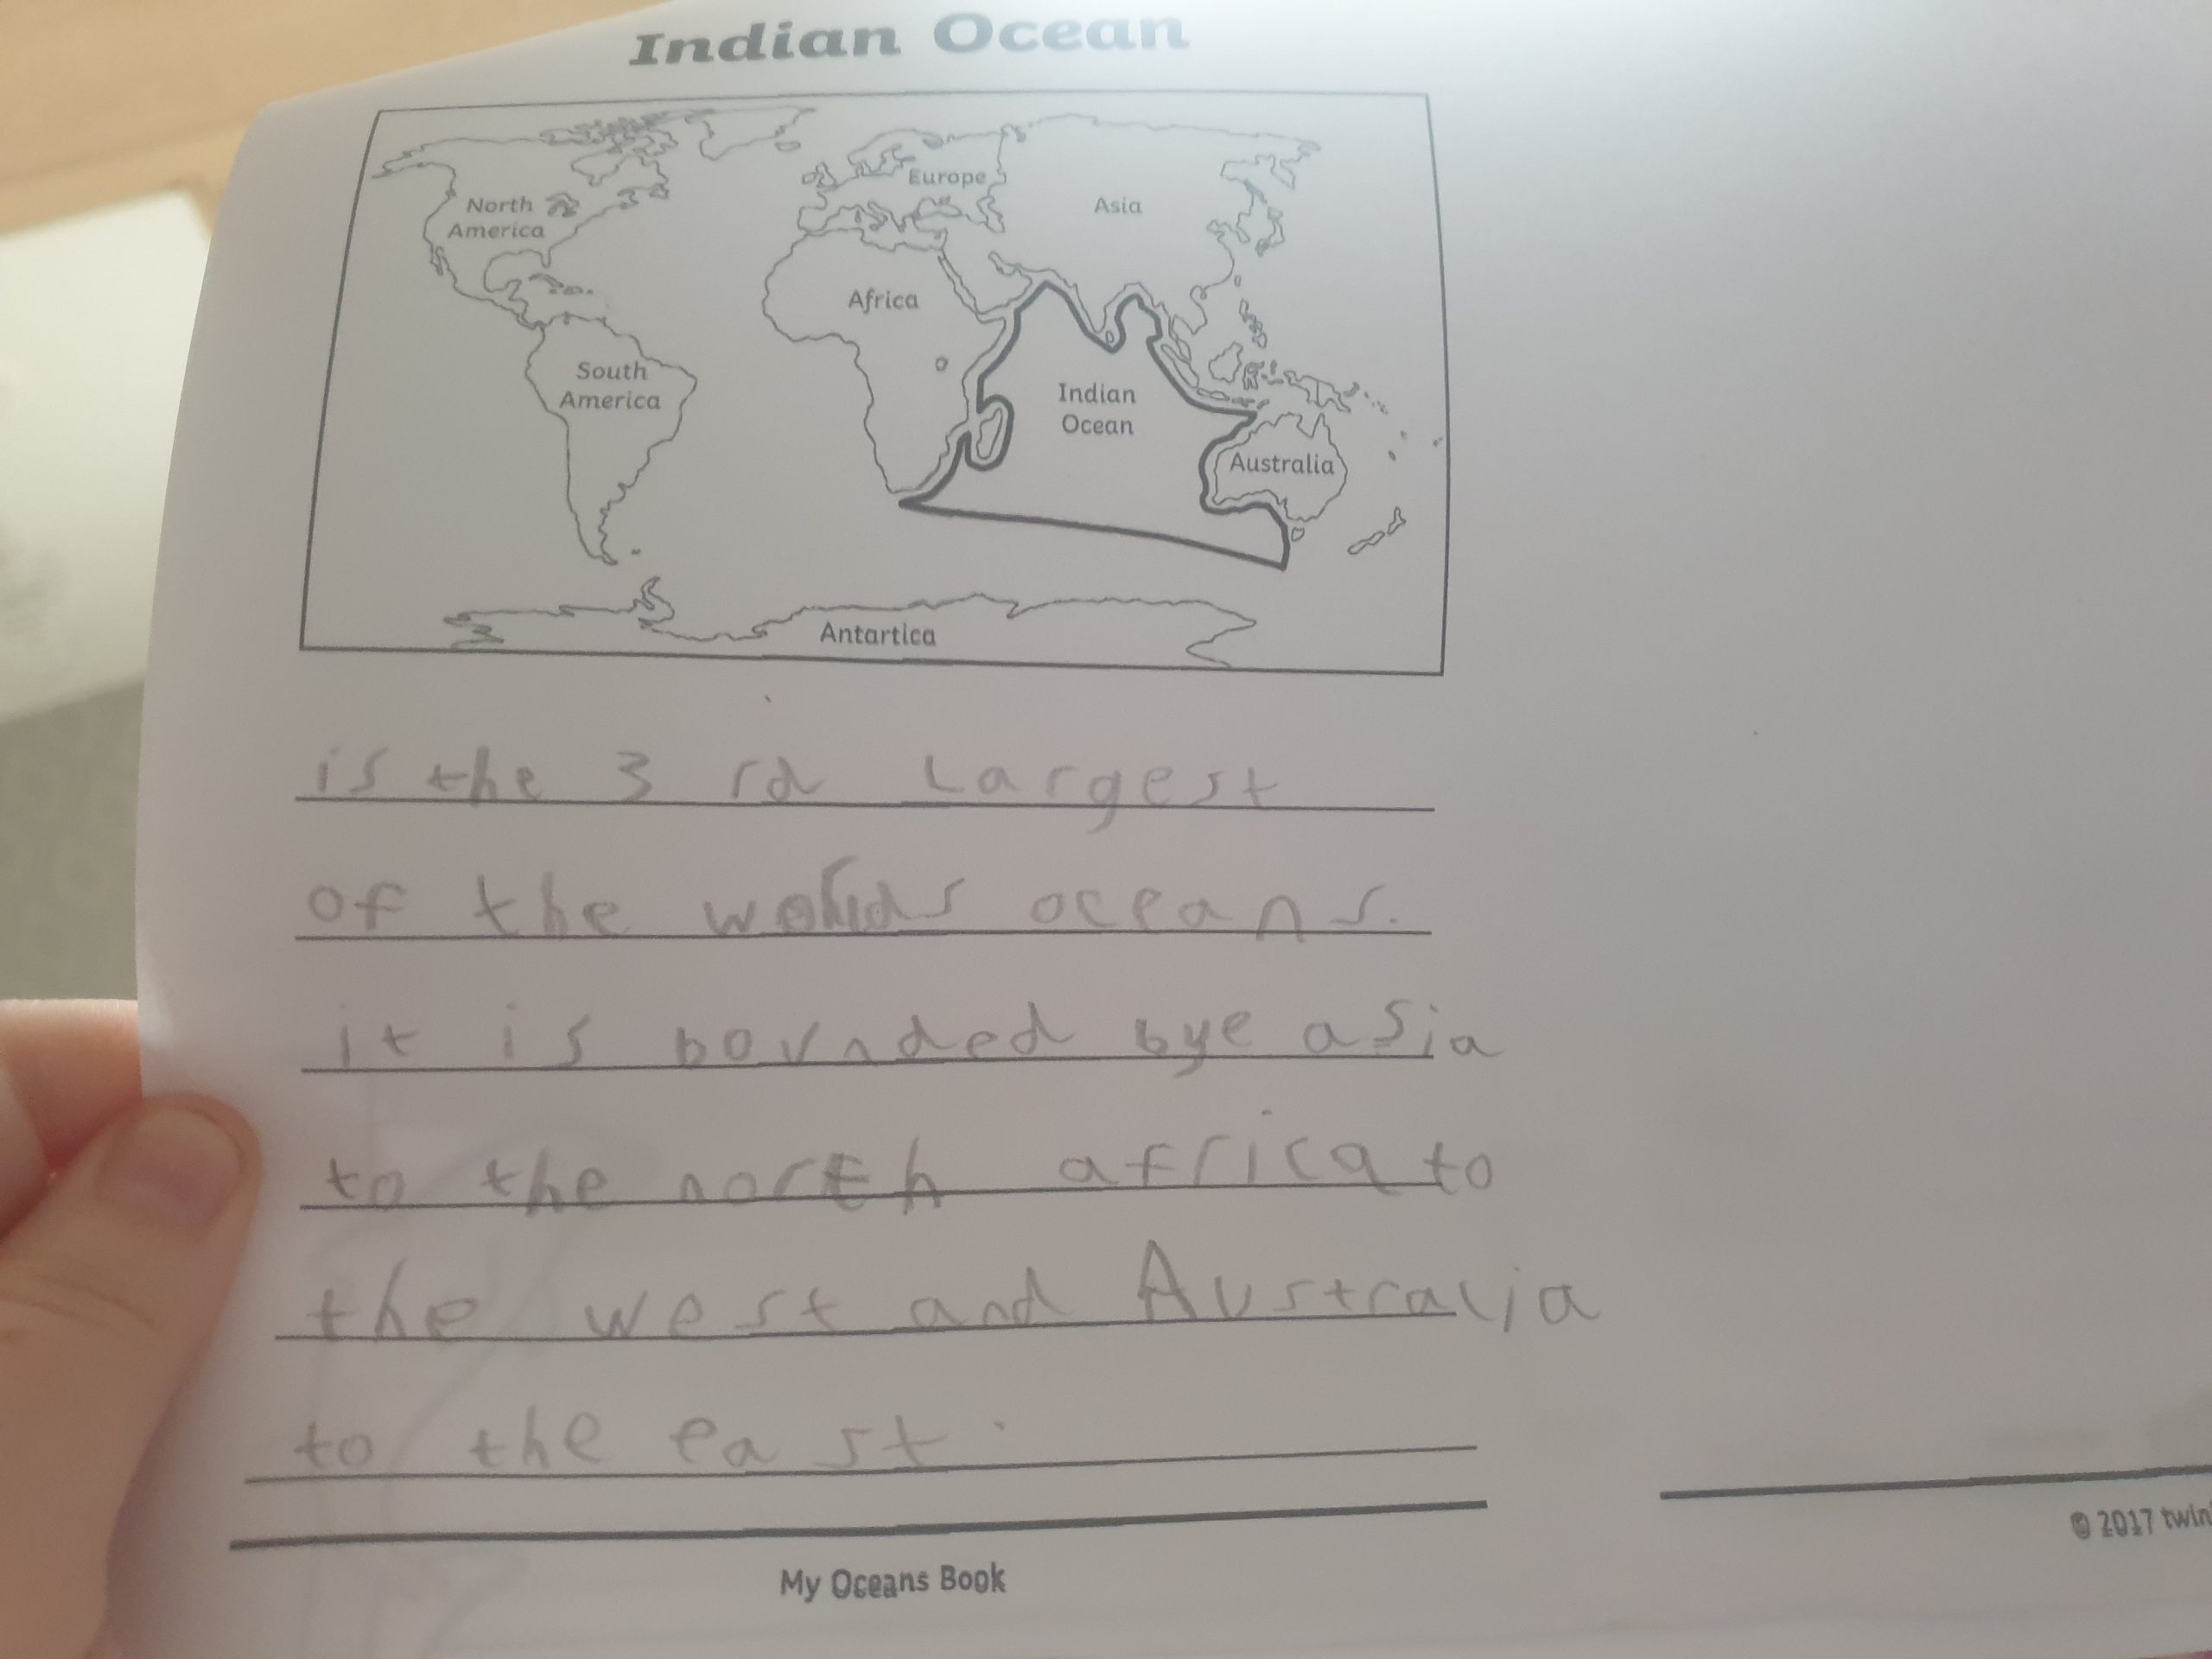 Indian Ocean
North
America
Europe
Asia
Africa
South
America
Indian
Ocean
Australia
Antartica
is the 3 rd Largest
of the worlds oceans.
it is bounded bye asia
to the north africa to
the west and Australia
to the east.
My Oceans Book
© 2017 twin